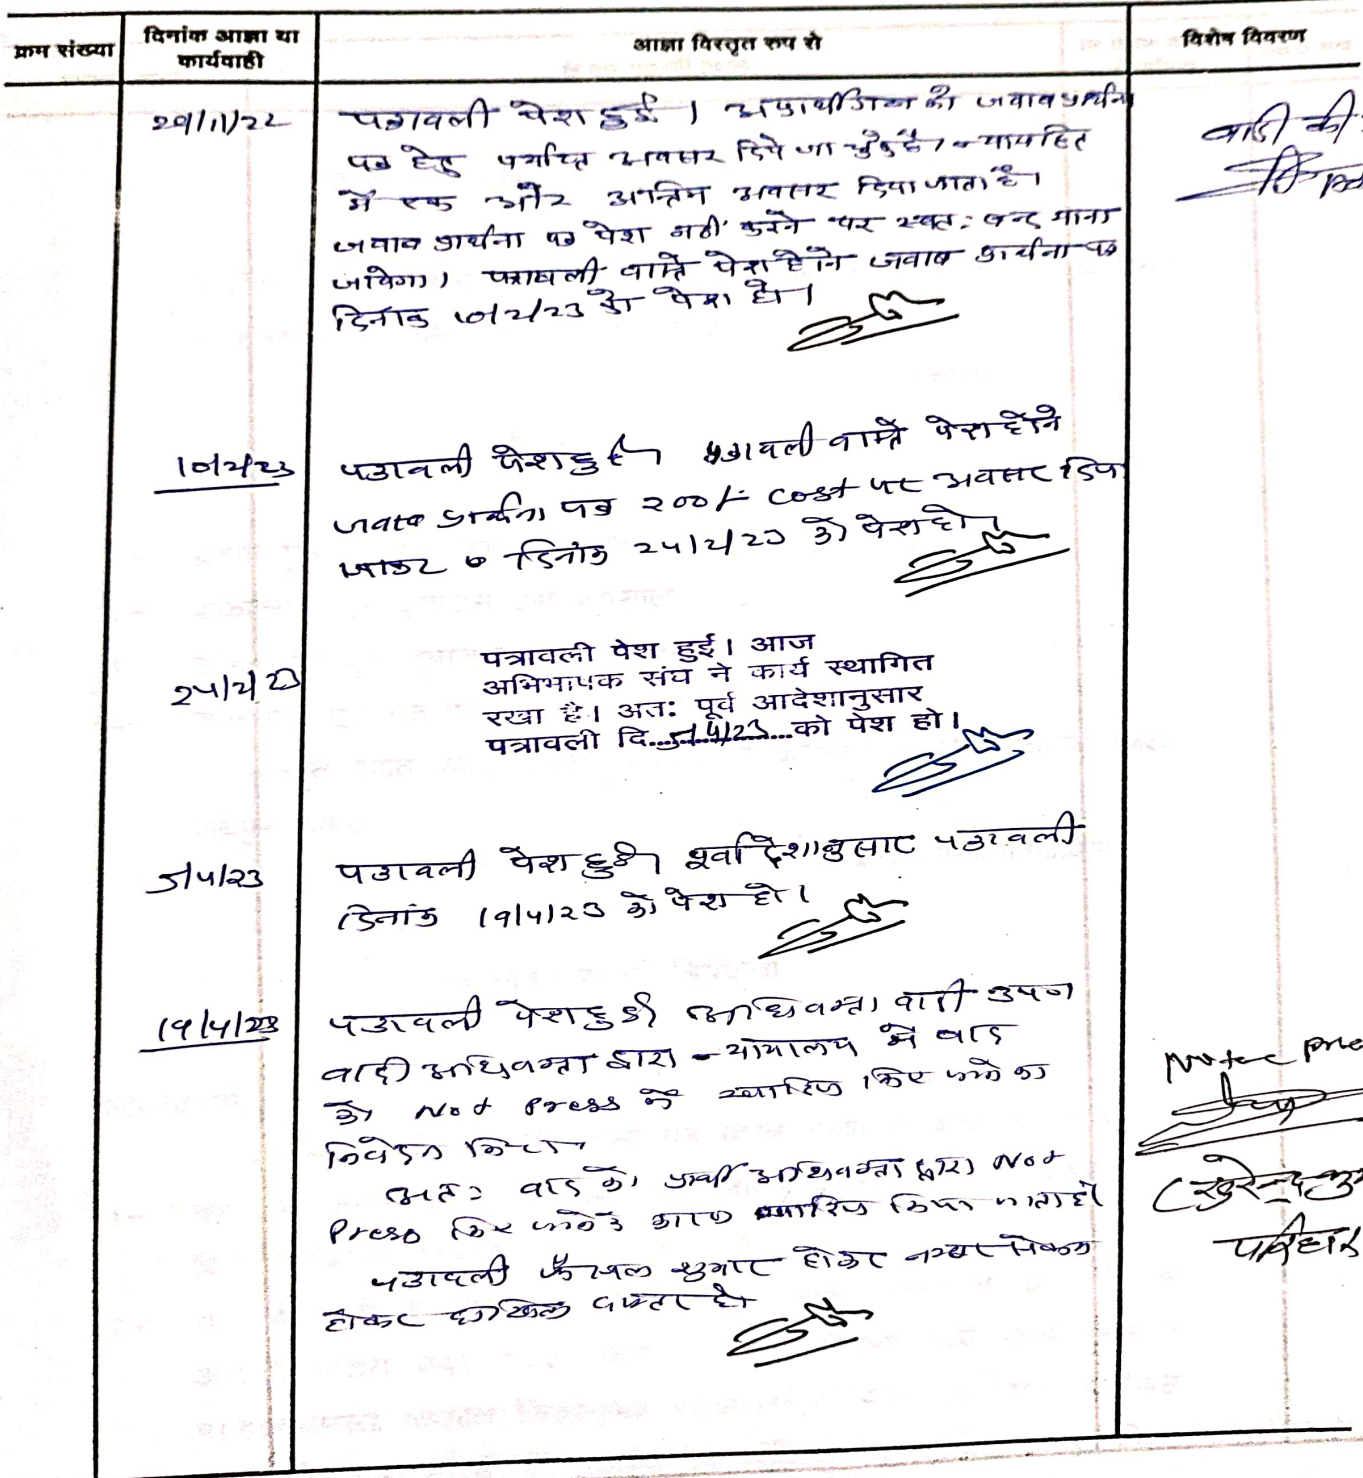 क्रम संख्या
दिनांक आज्ञा या
कार्यवाही
आज्ञा विस्तृत रूप से
विशेष विवरण
29/11/22
पत्रावली पेश हुई। अप्रार्थीगण को जवाब प्रार्थना
पत्र हेतु पर्याप्त अवसर दिये जा चुके है। न्यायहित
में एक और अन्तिम अवसर दिया जाता है।
जवाब प्रार्थना पत्र पेश नहीं करने पर स्वत: बन्द माना
जावेगा। पत्रावली वास्ते पेश होने जवाब प्रार्थना पत्र
दिनांक 10/2/23 को पेश हो।
वादी की
10/2/23
पत्रावली पेश हुई। पत्रावली वास्ते पेश होने
जवाब प्रार्थना पत्र 200/- cost पर अवसर दिया
जाकर दिनांक 24/2/23 को पेश हो।
24/2/23
पत्रावली पेश हुई। आज
अभिभाषक संघ ने कार्य स्थागित
रखा है। अतः पूर्व आदेशानुसार
पत्रावली दि...5/4/23...को पेश हो।
5/4/23
पत्रावली पेश हुई। पूर्वादेशानुसार पत्रावली
दिनांक 19/4/23 को पेश हो।
19/4/23
पत्रावली पेश हुई। अधिवक्ता वादी उपज
वादी अधिवक्ता द्वारा न्यायालय में वाद
को Not Press में खारिज किए जाने का
निवेदन किया।
अत: वाद को प्रार्थी अधिवक्ता द्वारा Not
Press किए जाने के खारिज किया जाता है।
पत्रावली फैसल शुमार होकर नम्बर से कम
होकर दाखिल दफ्तर हो
Not Pre
(सुरेन्द्र कु
परिहार